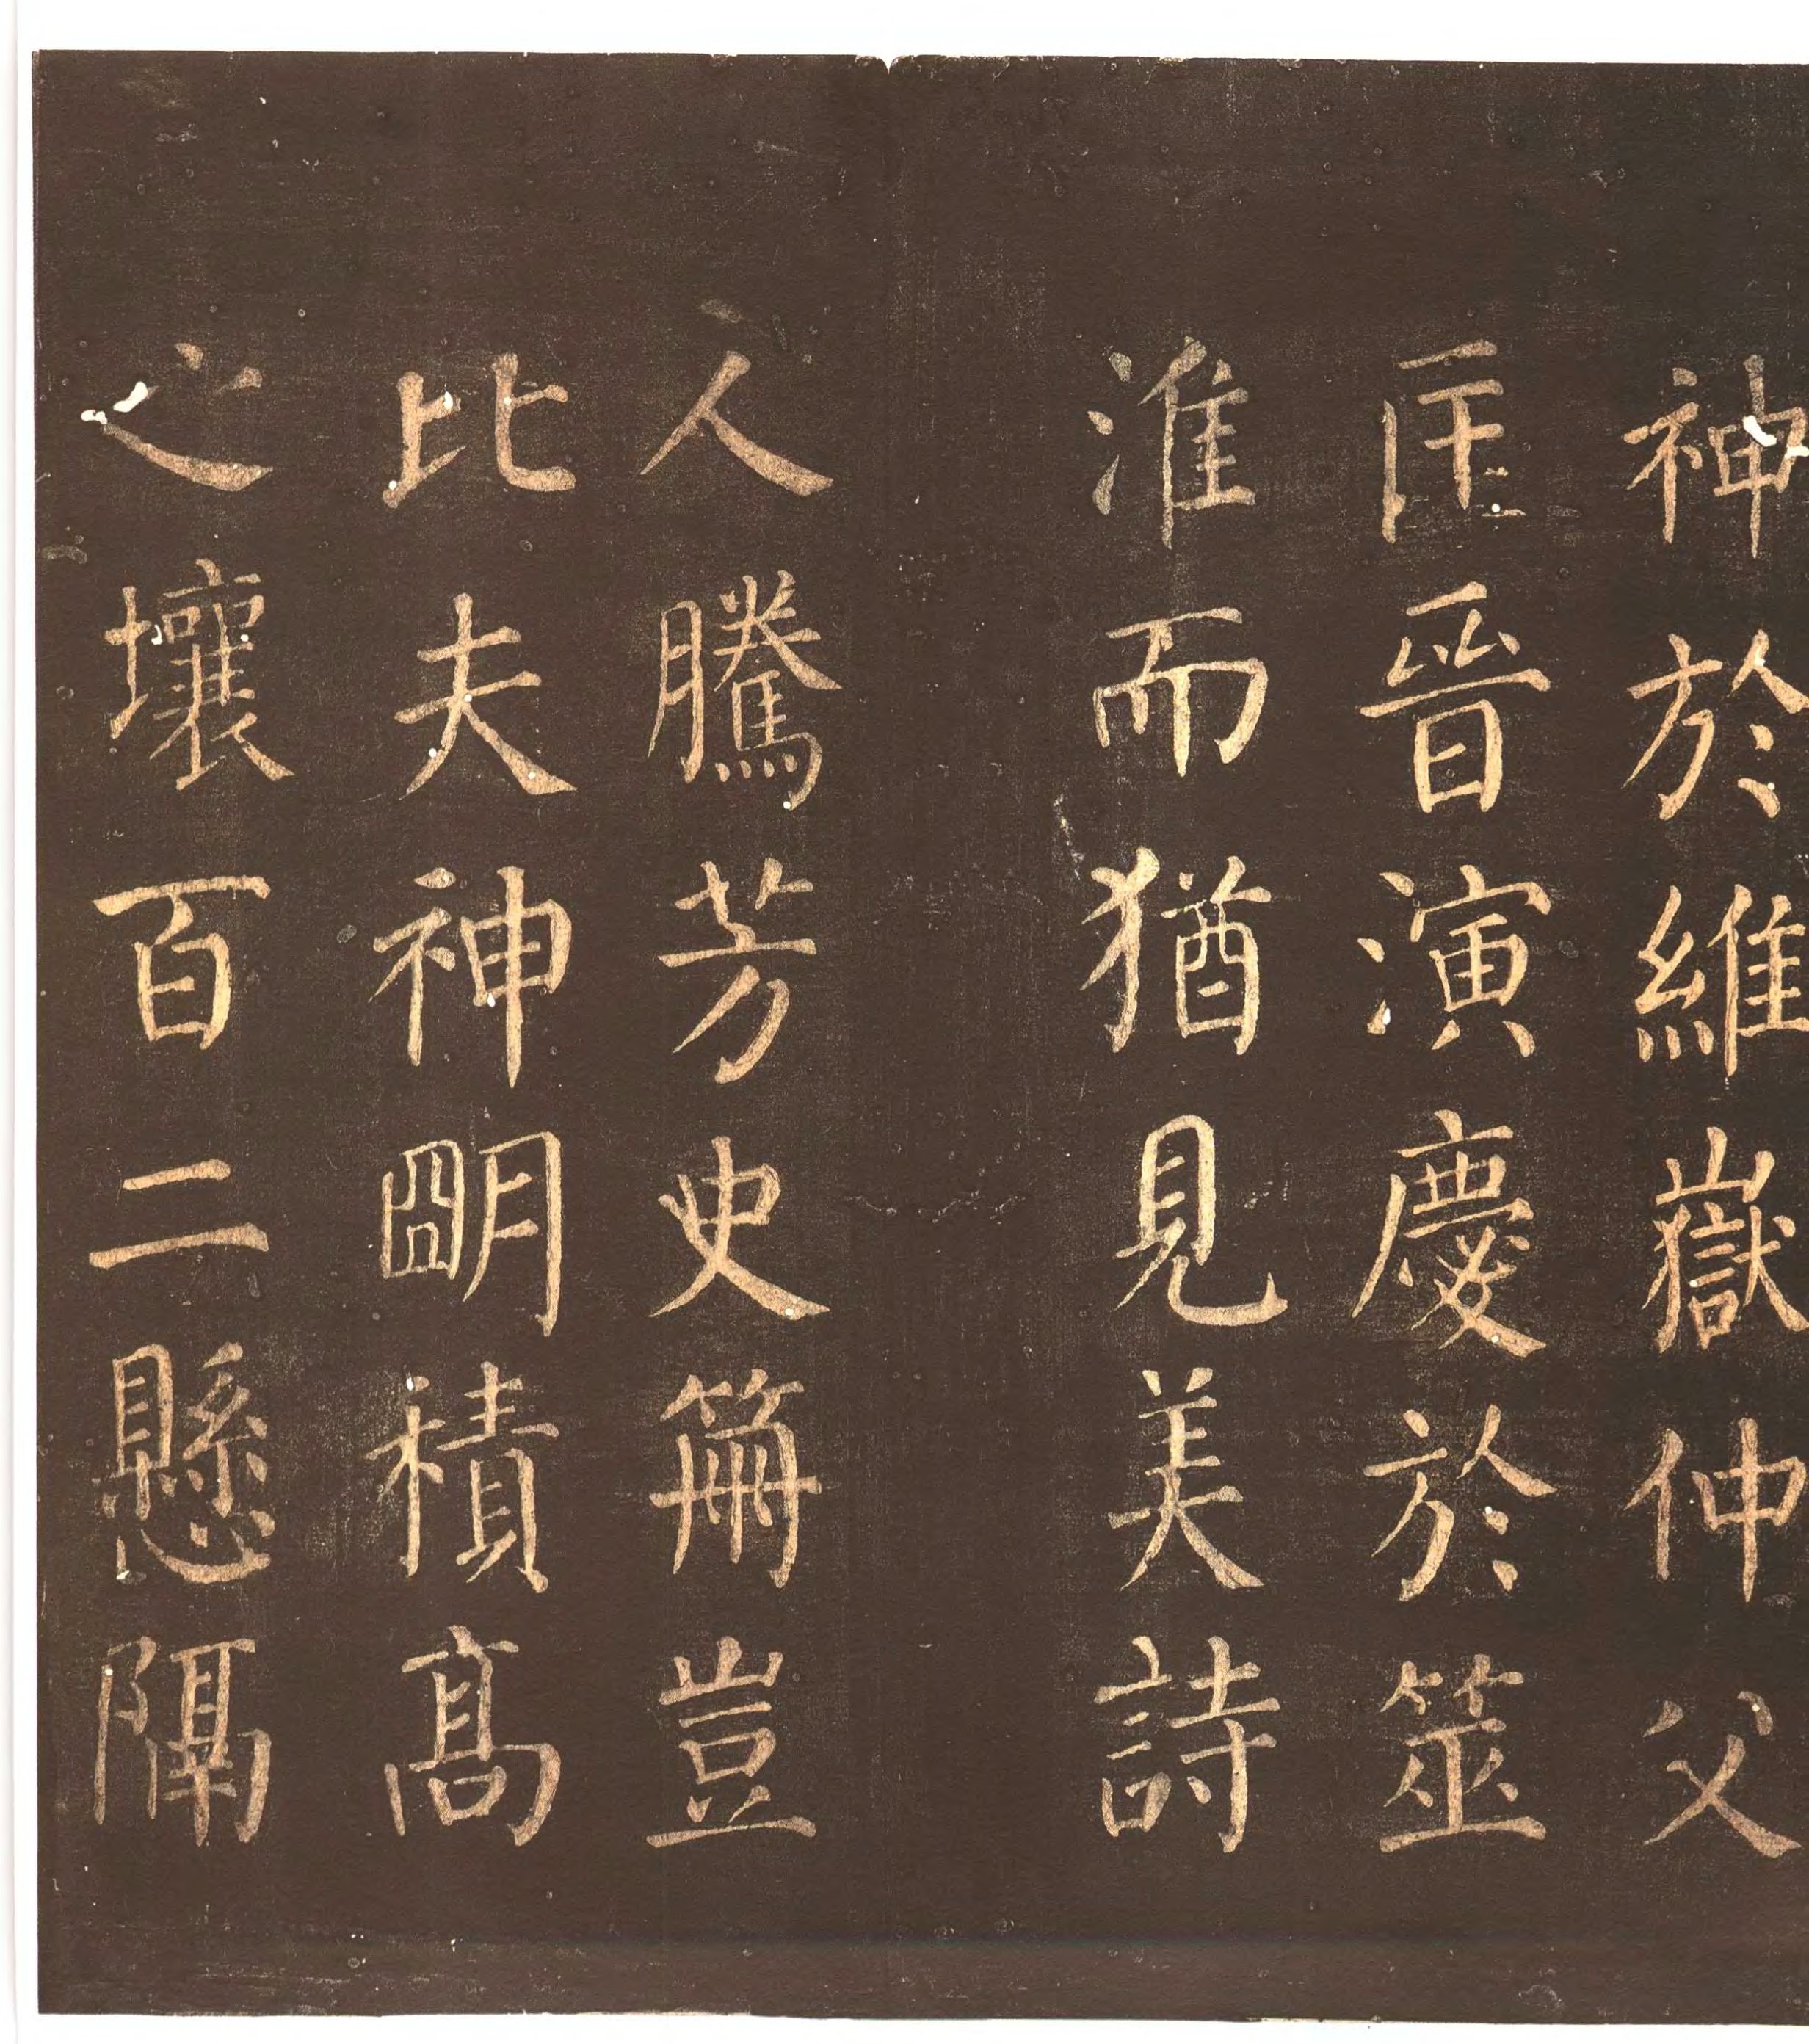 神於維嶽仲父
匡晋演慶於筮
淮而猶見美詩
人騰芳史笧豈
比夫神朙積髙
之壤百二懸隔